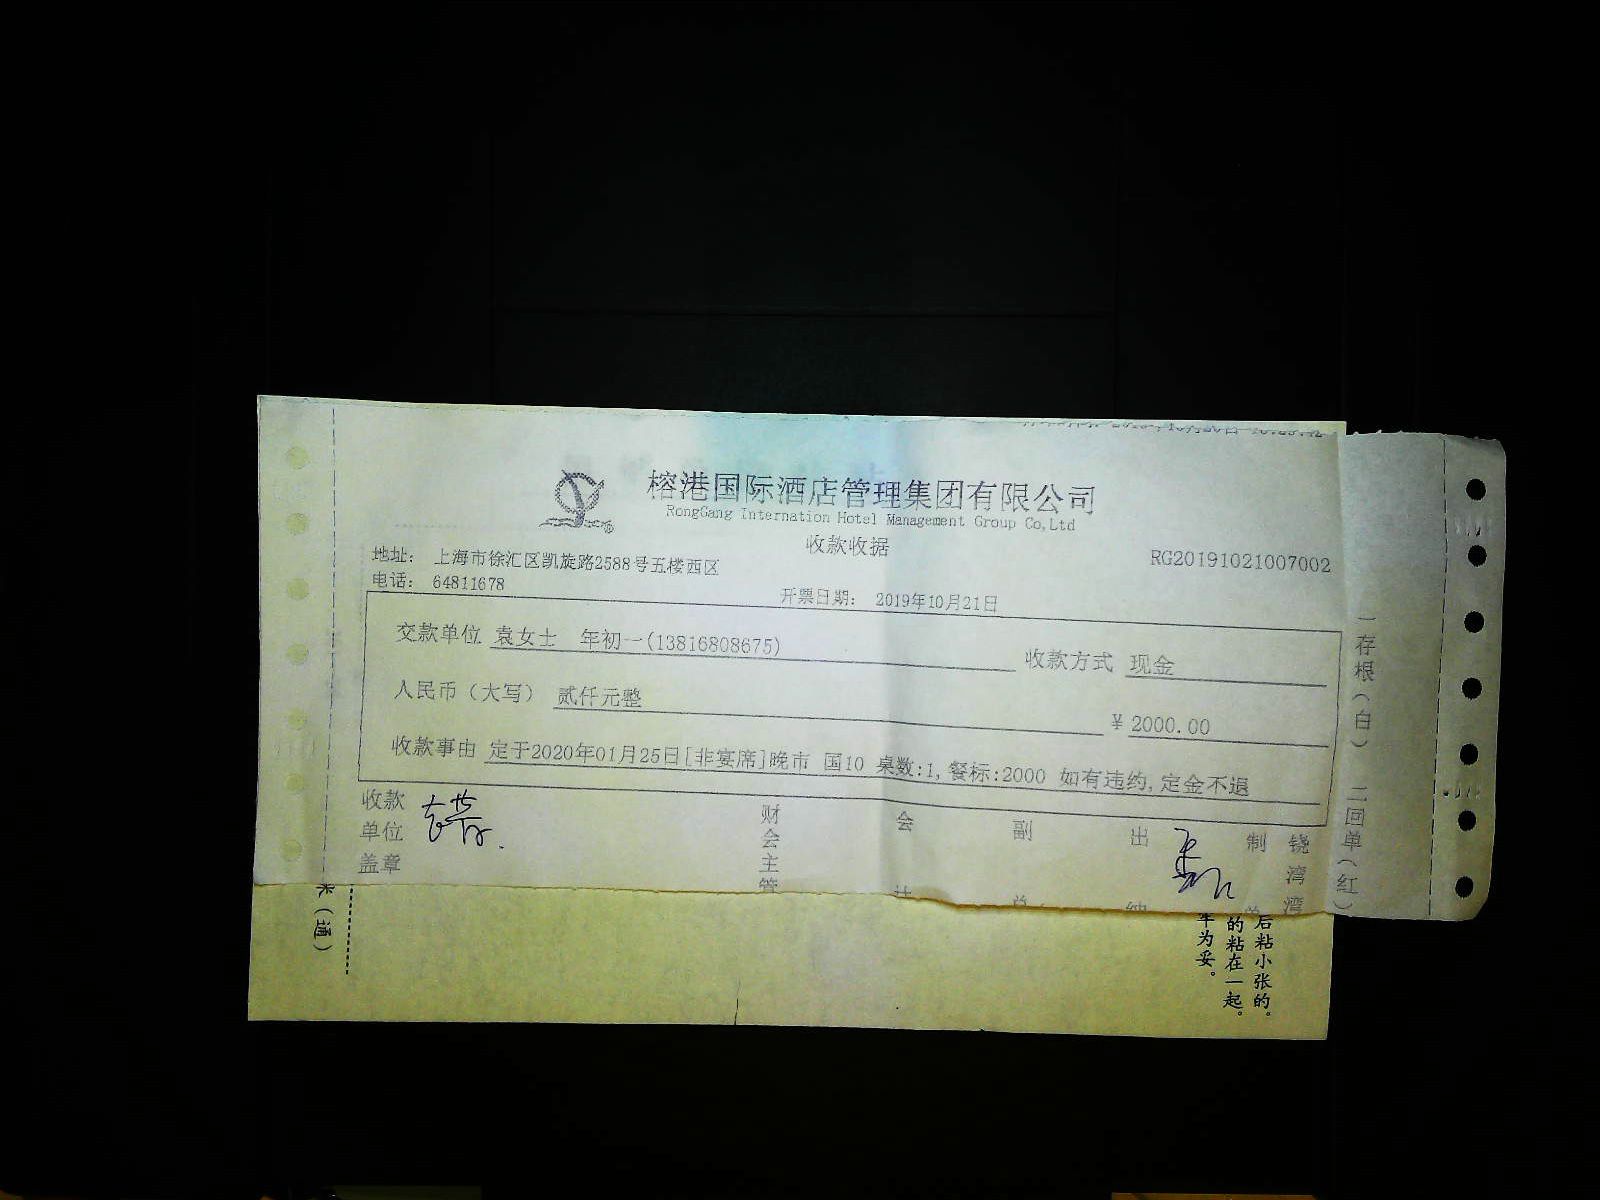 榕港国际酒店管理集团有限公司
RongGang Internation Hotel Management Group Co,Ltd
收款收据
地址： 上海市徐汇区凯旋路2588号五楼西区
RG20191021007002
电话： 64811678
开票日期： 2019年10月21日
交款单位 袁女士 年初一(13816808675)
收款方式 现金
人民币（大写） 贰仟元整
￥ 2000.00
收款事由 定于2020年01月25日[非宴席]晚市 国10 桌数:1,餐标:2000 如有违约,定金不退
收款单位盖章
财会主管
会
副
出
制
饶湾湾
一存根(白) 二回单(红)
后粘小张的。
的粘在一起。
年为妥。